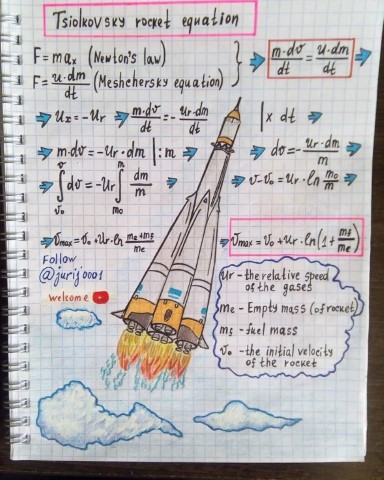 Tsiolkovsky rocket equation
F = maₓ (Newton's law)
F = u·dm/dt (Meshchersky equation)
m·dv/dt = u·dm/dt
uₓ = -Ur
m·dv/dt = - ur·dm/dt | x dt
m·dv = -Ur·dm |:m
dv = - Ur·dm/m
∫ᵥ₀ᵛ dv = -Ur ∫ₘ₀ᵐ dm/m
v-v₀ = Ur·ln m₀/m
Vmax = V₀+Ur·ln me+mf/me
Vmax = V₀+Ur·ln(1+mf/me)
Follow
@jurij0001
welcome
Ur - the relative speed
of the gases
me - Empty mass (of rocket)
mf - fuel mass
V₀ - the initial velocity
of the rocket